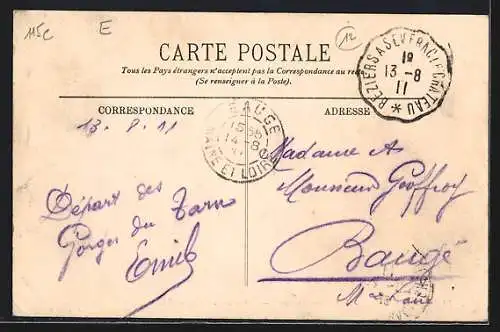 115c
E
12
CARTE POSTALE
Tous les Pays étrangers n'acceptent pas la Correspondance au rec
(Se renseigner à la Poste).
BEZIERS A SEVERAC LE CHATEAU
1º
13-8
11
CORRESPONDANCE
ADRESSE
BAUGE
15 55
14-8
MAINE ET LOIRE
13. 8. 11
Départ des
Gorges du Tarn
Emile
Madame A
Monsieur Geoffroy
Baugé
M & Loire